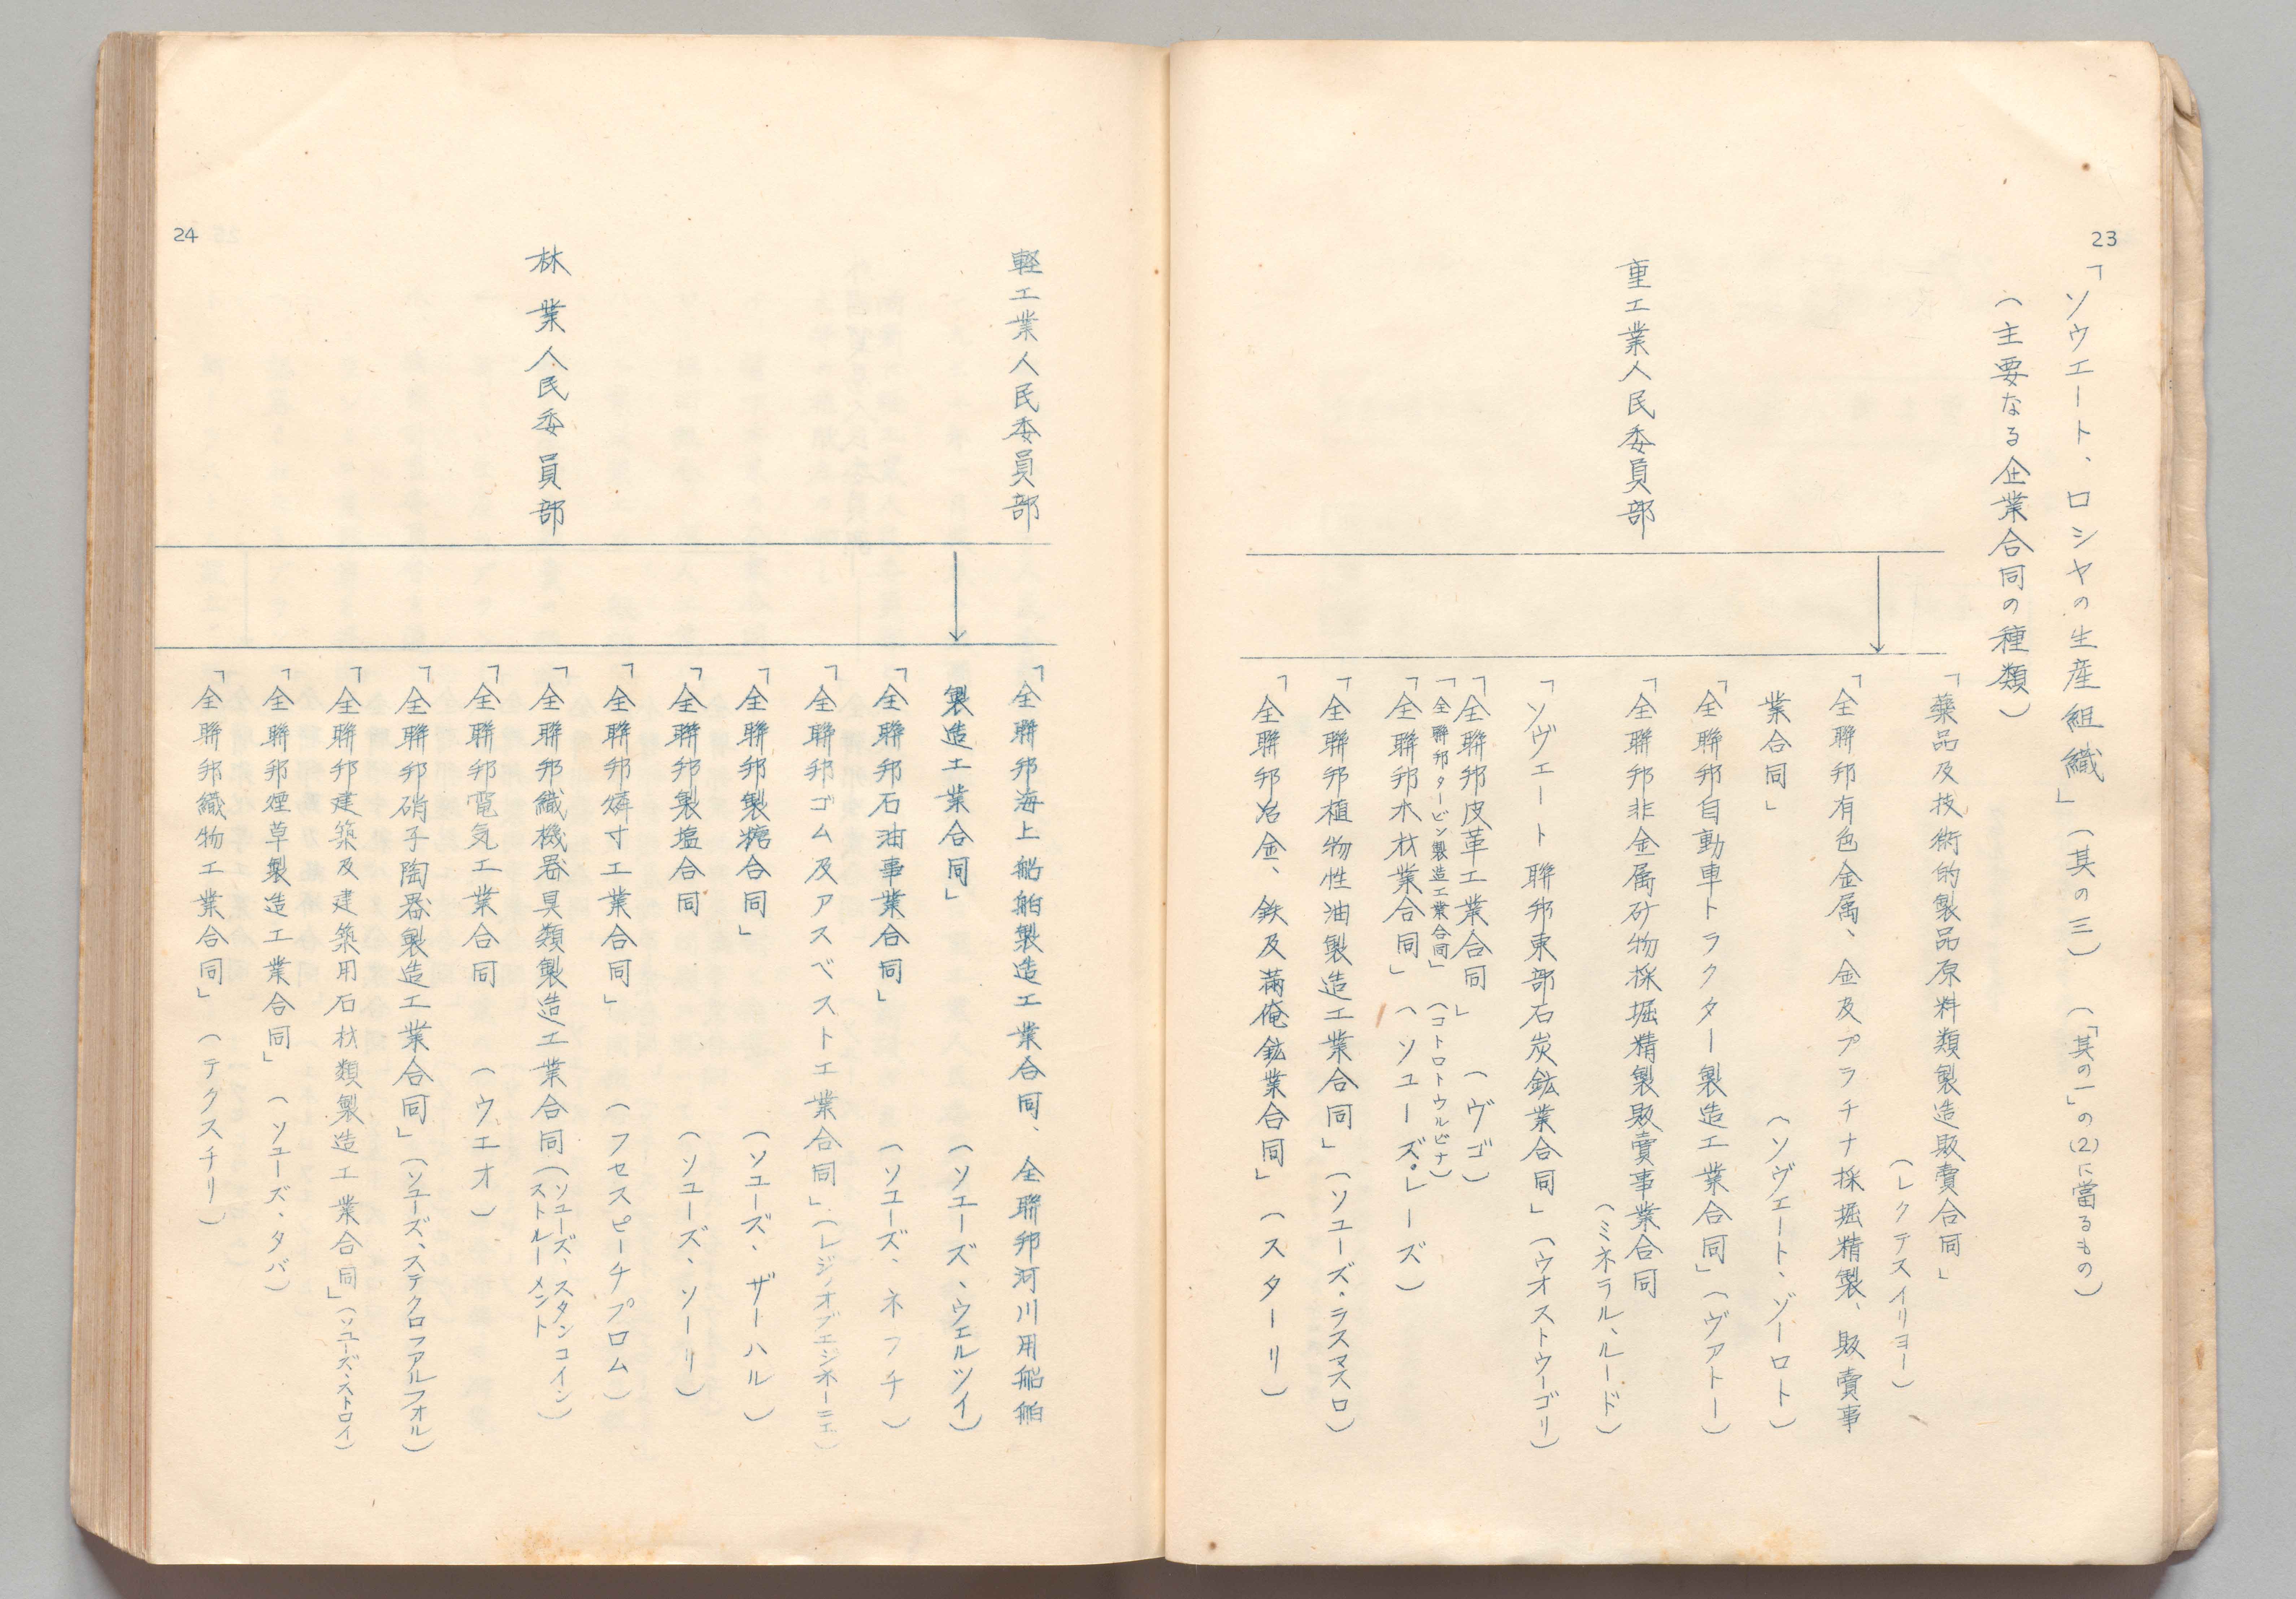 23
「ソウエート、ロシヤの生産組織」(其の三) (「其の一」の(2)に當るもの)
(主要なる企業合同の種類)
重工業人民委員部
「藥品及技術的製品原料類製造販賣合同」
(レクテスイリヨー)
「全聯邦有色金属、金及プラチナ採掘精製、販賣事
業合同」 (ソヴエート、ゾーロト)
「全聯邦自動車トラクター製造工業合同」(ヴアトー)
「全聯邦非金属砂物採掘精製販賣事業合同
(ミネラル、ルード)
「ソヴエート聯邦東部石炭鉱業合同」(ウオストウーゴリ)
「全聯邦皮革工業合同」 (ヴゴ)
「全聯邦タービン製造工業合同」 (コトロトウルビナ)
「全聯邦木材業合同」 (ソユーズ。レーズ)
「全聯邦植物性油製造工業合同」(ソユーズ、ラスマスロ)
「全聯邦冶金、鉄及満俺鉱業合同」(スターリ)
軽工業人民委員部
林業人民委員部
「全聯邦海上船舶製造工業合同、全聯邦河川用船舶
製造工業合同」 (ソエーズ、ウエルツイ)
「全聯邦石油事業合同」 (ソエーズ、ネフチ)
「全聯邦ゴム及アスベスト工業合同」(レジノオブエジネーニエ)
「全聯邦製糖合同」 (ソユーズ、ザーハル)
「全聯邦製塩合同 (ソユーズ、ソーリ)
「全聯邦燐寸工業合同」 (フセスピーチプロム)
「全聯邦織機器具類製造工業合同(ソユーズ、スタンコイン)
ストルーメント
「全聯邦電気工業合同 (ウエオ)
「全聯邦硝子陶器製造工業合同」(ソユーズ、ステクロフアルフオル)
「全聯邦建築及建築用石材類製造工業合同」(ソユーズ、ストロイ)
「全聯邦煙草製造工業合同」 (ソユーズ、タバ)
「全聯邦織物工業合同」 (テクスチリ)
24